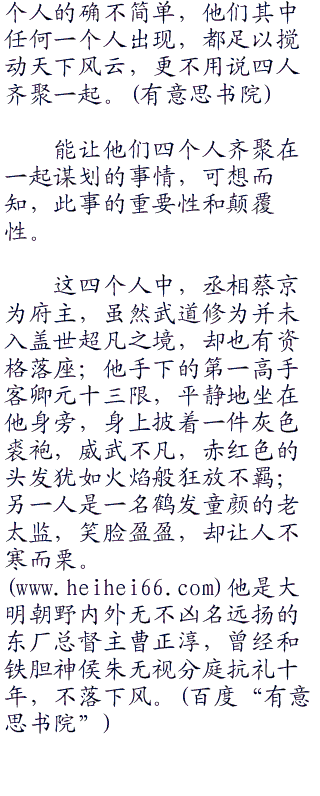 个人的确不简单，他们其中
任何一个人出现，都足以搅
动天下风云，更不用说四人
齐聚一起。(有意思书院)
能让他们四个人齐聚在
一起谋划的事情，可想而
知，此事的重要性和颠覆
性。
这四个人中，丞相蔡京
为府主，虽然武道修为并未
入盖世超凡之境，却也有资
格落座；他手下的第一高手
客卿元十三限，平静地坐在
他身旁，身上披着一件灰色
裘袍，威武不凡，赤红色的
头发犹如火焰般狂放不羁；
另一人是一名鹤发童颜的老
太监，笑脸盈盈，却让人不
寒而栗。
(www.heihei66.com)他是大
明朝野内外无不凶名远扬的
东厂总督主曹正淳，曾经和
铁胆神侯朱无视分庭抗礼十
年，不落下风。(百度“有意
思书院”)